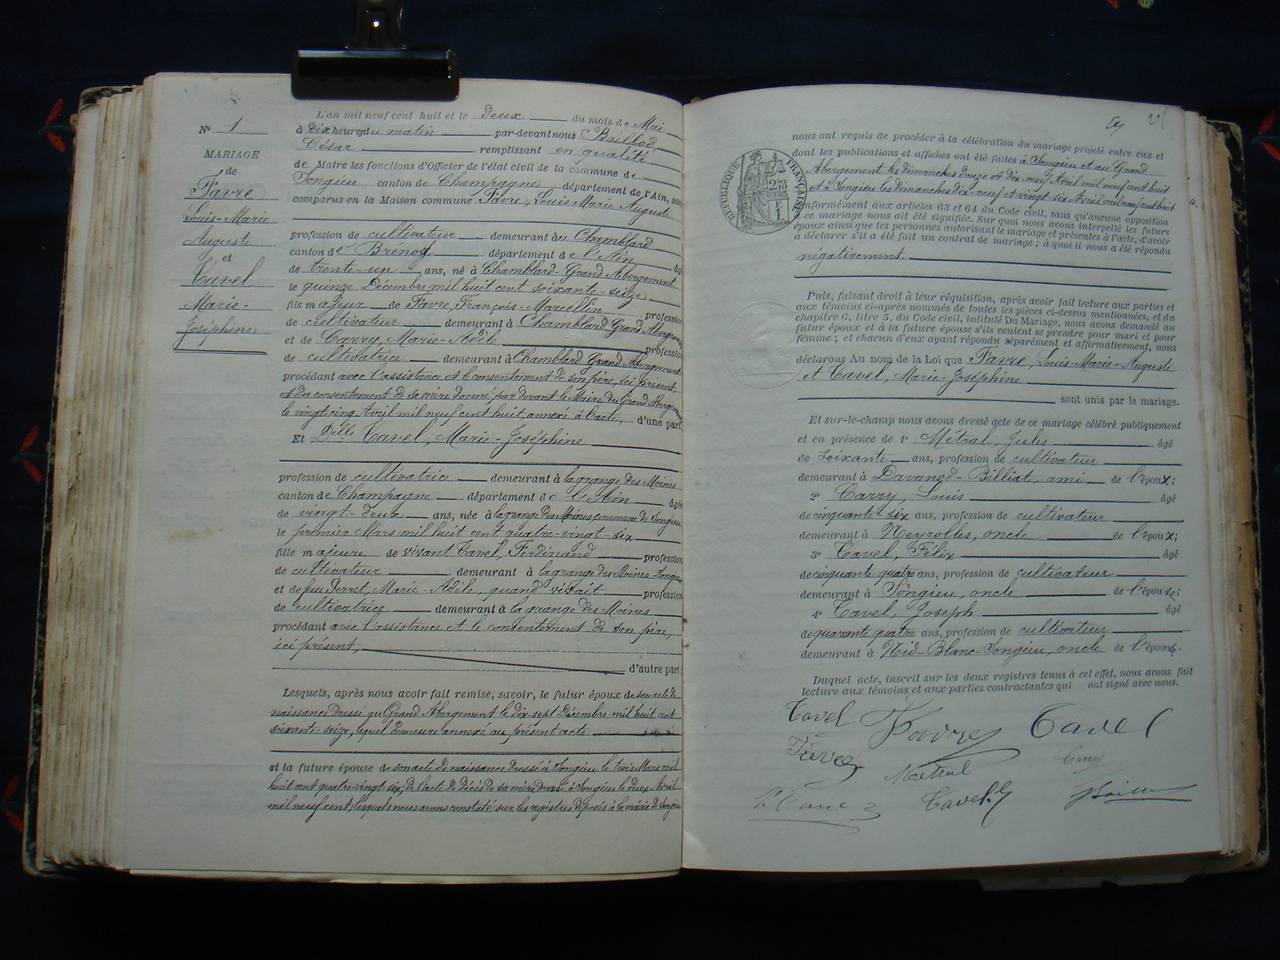 N° 1
MARIAGE
de
Favre
Louis-Marie
Auguste
et
Cavel
Marie-
Joséphine
L'an mil neuf cent huit et le Deux du mois de Mai
à Dix heures du matin par-devant nous Baillod,
César remplissant en qualité
de Maire les fonctions d'Officier de l'état civil de la commune de
Songieu canton de Champagne département de l'Ain, sont
comparus en la Maison commune Favre, Louis Marie Auguste
profession de cultivateur demeurant au Chamblard
canton de Brénod département de l'Ain âgé
de trente-un ans, né à Chamblard-Grand Abergement
le quinze Décembre mil huit cent soixante-seize
fils majeur de Favre, François-Marcellin profession
de cultivateur demeurant à Chamblard Grand Abergement
et de Carry, Marie-Adèle profession
de cultivatrice demeurant à Chamblard Grand Abergement
procédant avec l'assistance et le consentement de son père, ici présent,
et du consentement de sa mère donné par devant le Maire du Grand Abergement
le vingt cinq Avril mil neuf cent huit, annexé à l'acte, d'une part.
Et Delle Cavel, Marie-Joséphine
profession de cultivatrice demeurant à la grange des Moines
canton de Champagne département de l'Ain âgée
de vingt-deux ans, née à la grange des Moines commune de Songieu
le premier Mars mil huit cent quatre-vingt-six
fille majeure de vivant Cavel, Ferdinand profession
de cultivateur demeurant à la grange des Moines Songieu
et de feu Perret, Marie-Adèle, quand vivait profession
de cultivatrice demeurant à la grange des Moines
procédant avec l'assistance et le consentement de son père,
ici présent, d'autre part
Lesquels, après nous avoir fait remise, savoir, le futur époux de son acte de
naissance dressé au Grand Abergement le dix-sept Décembre mil huit cent
soixante-seize, lequel demeure annexé au présent acte
et la future épouse de son acte de naissance dressé à Songieu le trois Mars mil
huit cent quatre vingt six; de l'acte de décès de sa mère dressé à Songieu le deux Avril
mil neuf cent, lesquels nous avons constaté sur les registres déposés à la mairie de Songieu
RÉPUBLIQUE FRANÇAISE
nous ont requis de procéder à la célébration du mariage projeté entre eux et
dont les publications et affiches ont été faites à Songieu et au Grand
Abergement les dimanches douze et dix-neuf Avril mil neuf cent huit
et à Songieu les dimanches dix-neuf et vingt six Avril mil neuf cent huit
conformément aux articles 63 et 64 du Code civil, sans qu'aucune opposition
à ce mariage nous ait été signifiée. Sur quoi nous avons interpellé les futurs
époux ainsi que les personnes autorisant le mariage et présentes à l'acte, d'avoir
à déclarer s'il a été fait un contrat de mariage; à quoi il nous a été répondu
négativement.
Puis, faisant droit à leur réquisition, après avoir fait lecture aux parties et
aux témoins ci-après nommés de toutes les pièces ci-dessus mentionnées, et du
chapitre 6, titre 5, du Code civil, intitulé Du Mariage, nous avons demandé au
futur époux et à la future épouse s'ils veulent se prendre pour mari et pour
femme; et chacun d'eux ayant répondu séparément et affirmativement, nous
déclarons Au nom de la Loi que Favre, Louis-Marie-Auguste
et Cavel, Marie-Joséphine
sont unis par le mariage.
Et sur-le-champ nous avons dressé acte de ce mariage célébré publiquement
et en présence de 1° Métral, Jules âgé
de soixante ans, profession de cultivateur
demeurant à Davanod-Billiat, ami de l'époux;
2° Carry, Louis âgé
de cinquante-six ans, profession de cultivateur
demeurant à Neyrolles, oncle de l'époux;
3° Cavel, Félix âgé
de cinquante quatre ans, profession de cultivateur
demeurant à Songieu, oncle de l'épouse;
4° Cavel, Joseph âgé
de quarante quatre ans, profession de cultivateur
demeurant à Nid-Blanc-Songieu, oncle de l'épouse.
Duquel acte, inscrit sur les deux registres tenus à cet effet, nous avons fait
lecture aux témoins et aux parties contractantes qui ont signé avec nous.
Cavel Favre Cavel
Favre Métral Carry
Cavel